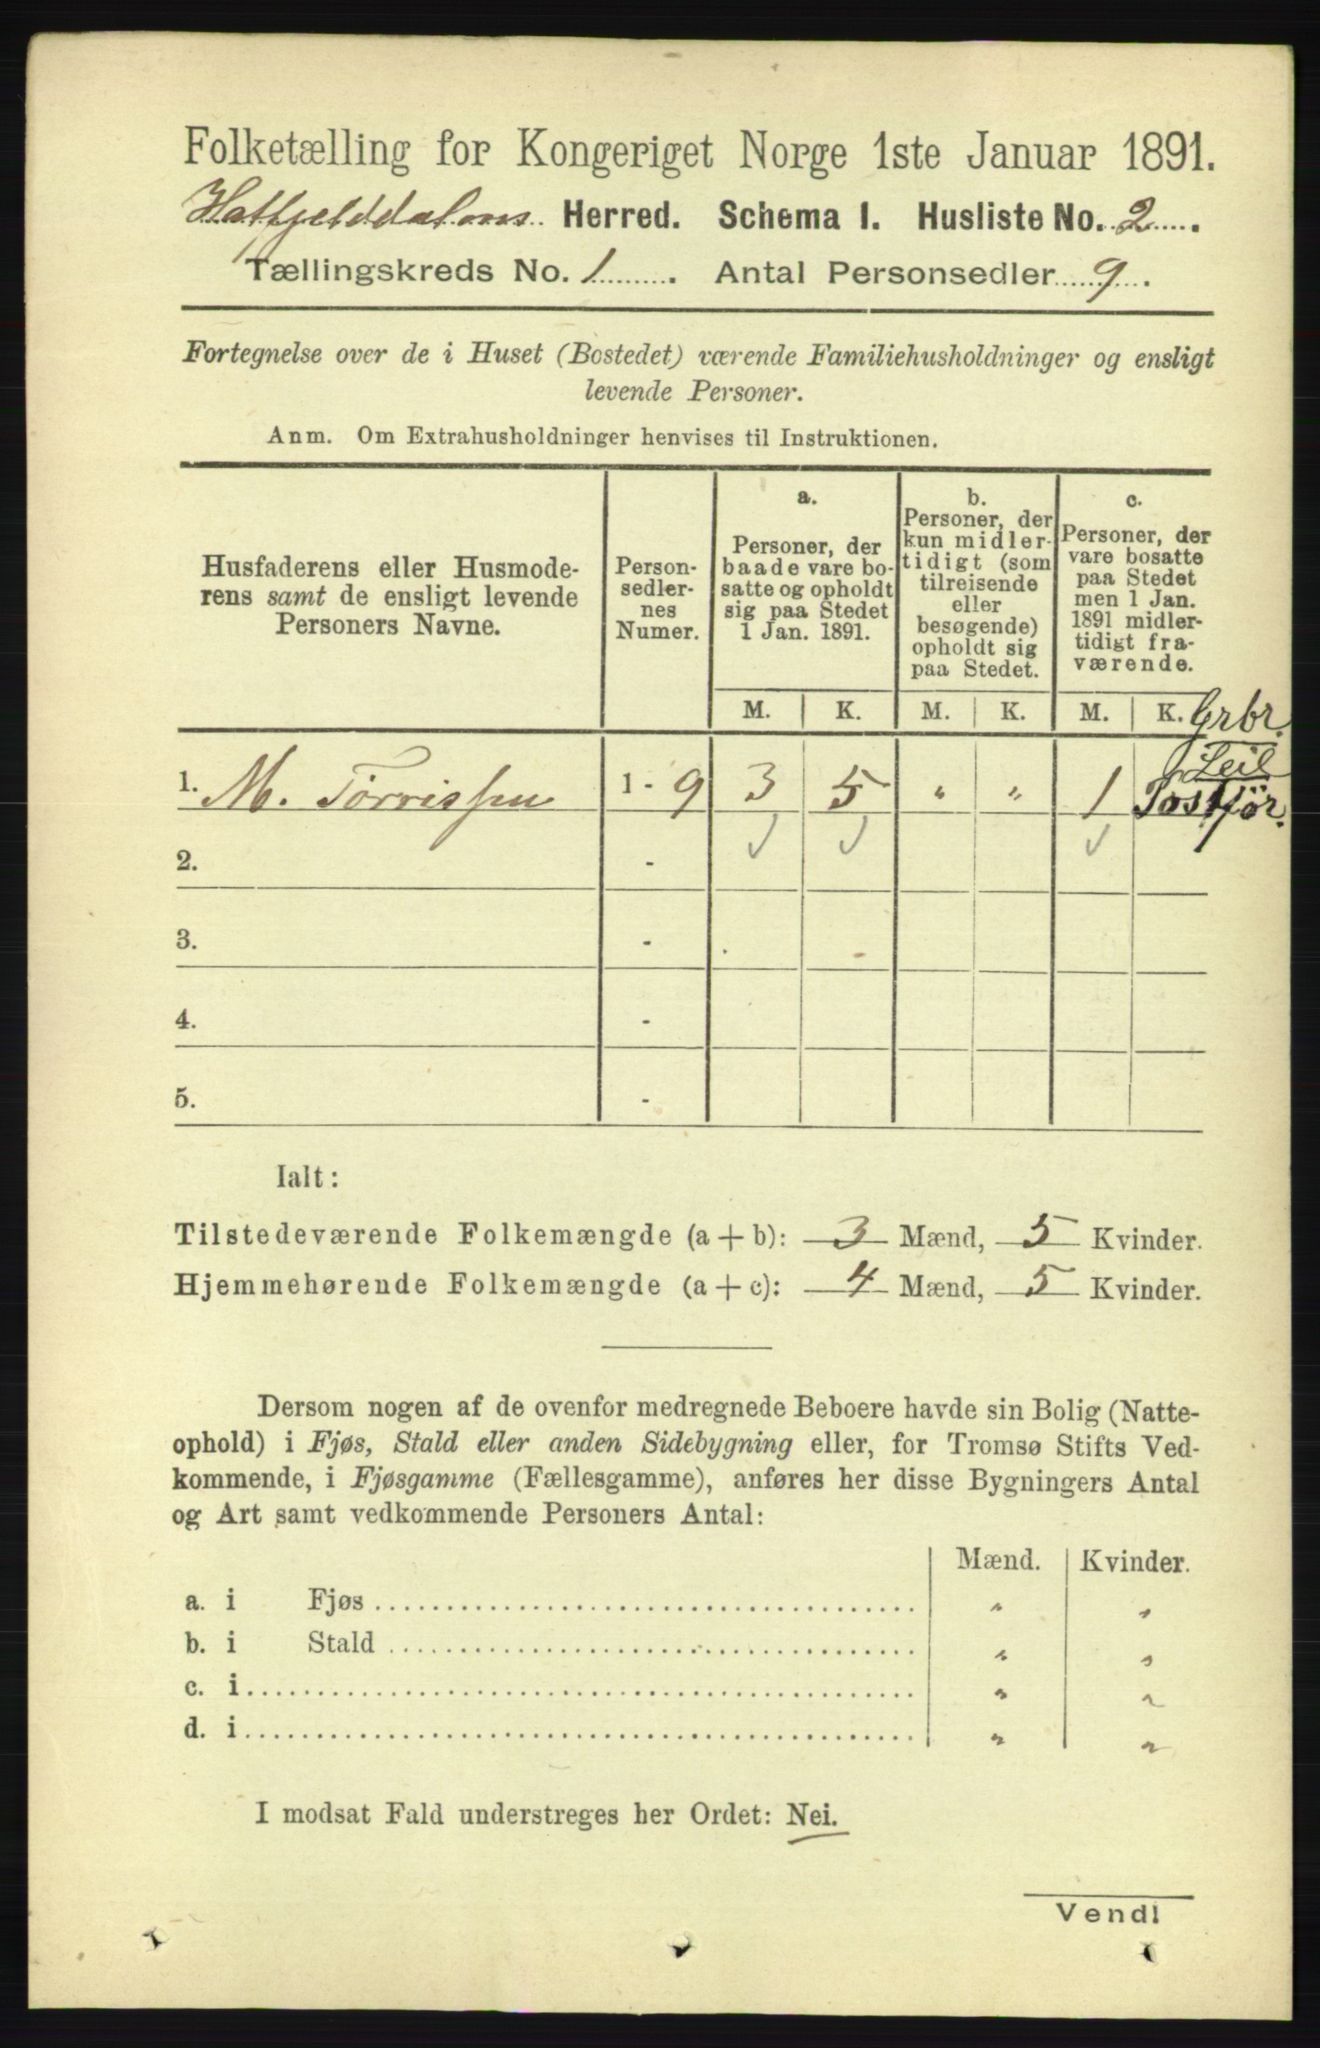 Folketælling for Kongeriget Norge 1ste Januar 1891.
Hatfjelddalens Herred. Schema I. Husliste No. 2
Tællingskreds No. 1. Antal Personsedler 9.
Fortegnelse over de i Huset (Bostedet) værende Familiehusholdninger og ensligt
levende Personer.
Anm. Om Extrahusholdninger henvises til Instruktionen.
Husfaderens eller Husmode-
rens samt de ensligt levende
Personers Navne.
Person-
sedler-
nes
Numer.
a.
Personer, der
baade vare bo-
satte og opholdt
sig paa Stedet
1 Jan. 1891.
b.
Personer, der
kun midler-
tidigt (som
tilreisende
eller
besøgende)
opholdt sig
paa Stedet.
c.
Personer, der
vare bosatte
paa Stedet
men 1 Jan.
1891 midler-
tidigt fra-
værende.
M. K. M. K. M. K. Grbr.
Leil
1. M. Tørrissen 1 - 9 3 5 " " 1 Postfør.
2. -
3. -
4. -
5. -
Ialt:
Tilstedeværende Folkemængde (a + b): 3 Mænd, 5 Kvinder.
Hjemmehørende Folkemængde (a + c): 4 Mænd, 5 Kvinder.
Dersom nogen af de ovenfor medregnede Beboere havde sin Bolig (Natte-
ophold) i Fjøs, Stald eller anden Sidebygning eller, for Tromsø Stifts Ved-
kommende, i Fjøsgamme (Fællesgamme), anføres her disse Bygningers Antal
og Art samt vedkommende Personers Antal:
Mænd. Kvinder.
a. i Fjøs " "
b. i Stald " "
c. i " "
d. i " "
I modsat Fald understreges her Ordet: Nei.
Vend!